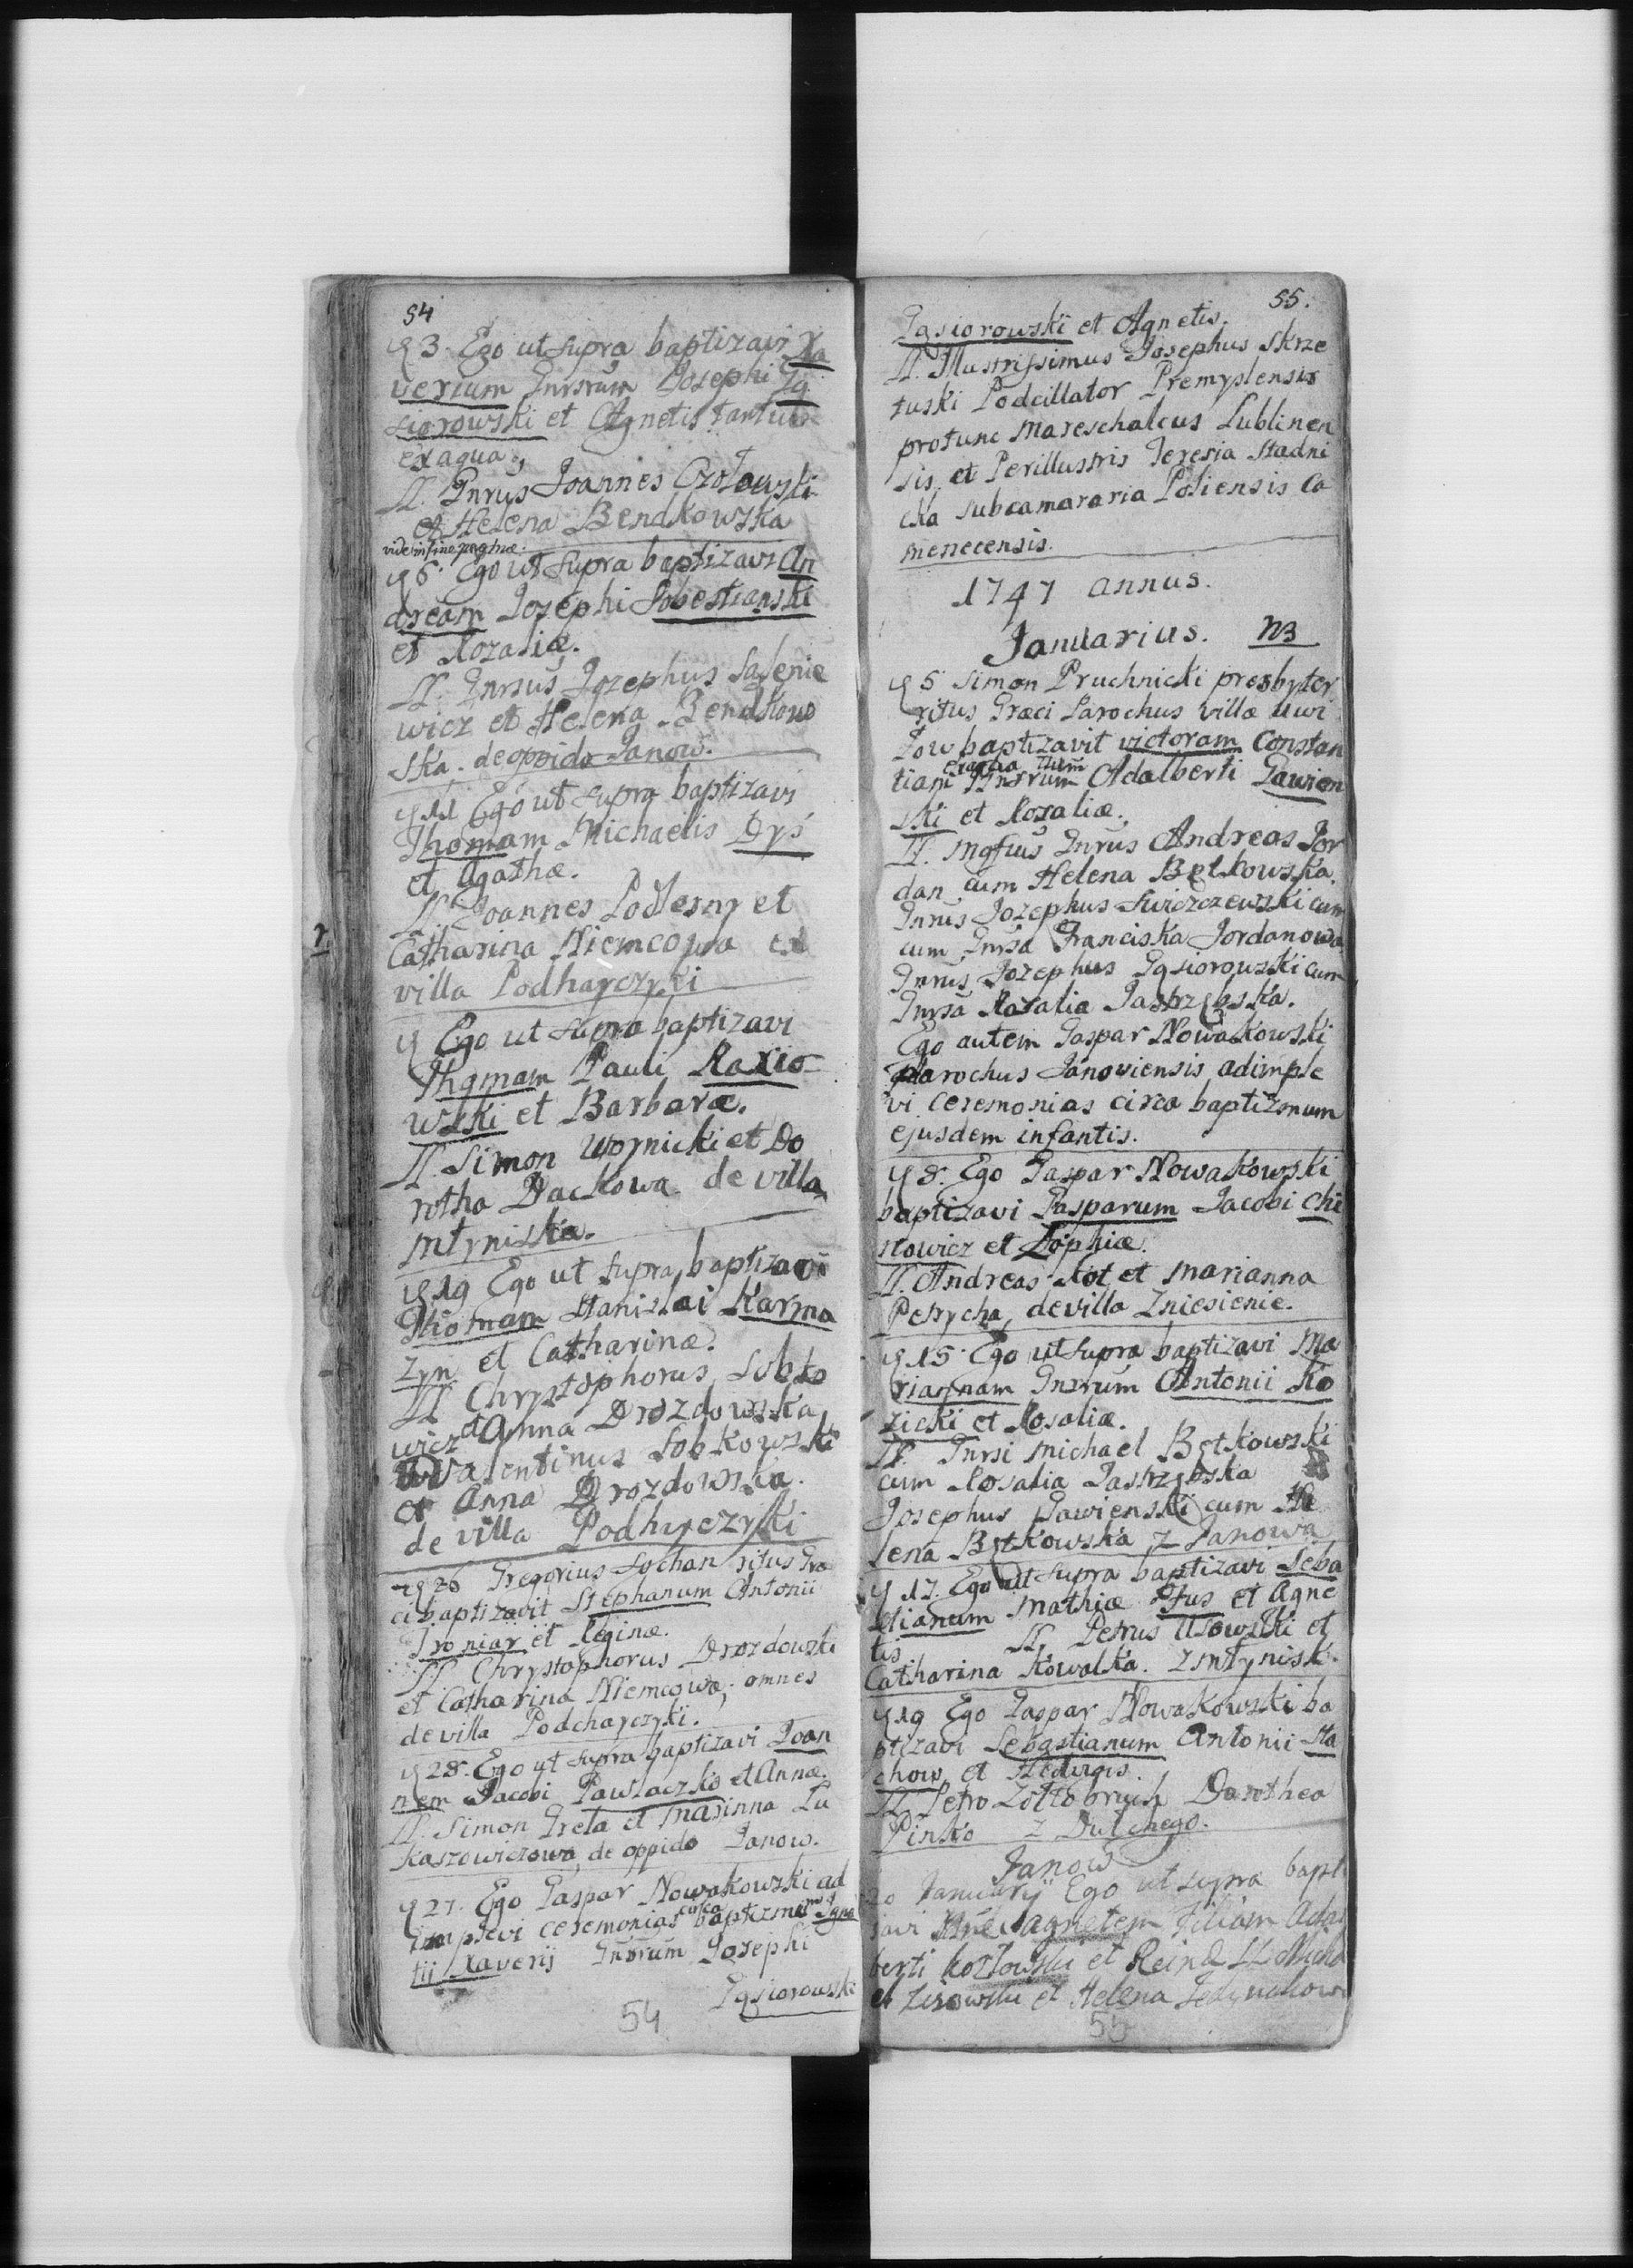 54
3. Ego ut supra baptizavi Xa
verium Gnrsrum Josephi Gą
siorowski et Agnetis tantum
ex aqua.
LL. Gnrus Joannes Czołowski
et Helena Bendkowska
vide in fine paginæ.
6. Ego ut supra baptizavi An
dream Jozephi Sobestianski
et Rozaliæ.
LL. Gnrsus Jozephus Sasenie
wicz et Helena Bendkow
ska. de oppido Janow.
11 Ego ut supra baptizavi
Thomam Michaelis Dyś
et Agathæ.
LL. Joannes Podlesny et
Catharina Niemcowa ex
villa Podhayczyki
Ego ut supra baptizavi
Thomam Pauli Raxio
wski et Barbaræ.
LL. Simon Woynicki et Do
rotha Dackowa de villa
Młyniska.
19 Ego ut supra baptizavi
Thomam Stanislai Karma
zyn et Catharinæ.
LL Chrystophorus Sobko
wicz et Anna Drozdowska
Valentinus Sobkowski
et Anna Drozdowska.
de villa Podhayczyki
26 Gregorius Sochan ritus Græ
ci baptizavit Stephanum Antonii
Troniar et Reginæ.
LL Chrystophorus Drozdowski
et Catharina Niemcowa, omnes
de villa Podchayczyki.
28. Ego ut supra baptizavi Joan
nem Jacobi Pawlaczko et Annæ.
LL. Simon Greta et Marinna Lu
kaszowiczowa de oppido Janow.
27. Ego Gaspar Nowakowski ad
implevi ceremonias circa baptizmum Igna
tii Xaverij Gnrsrum Josephi
Gąsiorowski
54
55.
Gąsiorowski et Agnetis.
LL. Illustrissimus Josephus Skrze
tuski Podcillator Premyslensis
protunc Mareschalcus Lublinen
sis, et Perillustris Teresia Stadni
cka subcamararia Poliensis Ca
menecensis.
1747 annus.
Januarius. NB
5 Simon Pruchnicki presbyter
ritus Græci Parochus villæ Uwi
sow baptizavit victoram Constan
ex aqua tum
tiam Gnrsrum Adalberti Gawien
ski et Rozaliæ.
LL. Mgfius Gnrus Andreas Jor
dan cum Helena Bętkowska.
Gnrus Jozephus Swirzczewski cum
cum Gnrsa Franciska Jordanowa
Gnrus Jozephus Gąsiorowski cum
Gnrsa Rozalia Jastrzębska.
Ego autem Gaspar Nowakowski
Parochus Janoviensis adimple
vi ceremonias circa baptizmum
ejusdem infantis.
8. Ego Gaspar Nowakowski
baptizavi Gasparum Jacobi Chi
nowicz et Zophiæ.
LL. Andreas Kot et Marianna
Petrycha, de villa Zniesienie.
15. Ego ut supra baptizavi Ma
riannam Gnrsrum Antonii Ko
zicki et Rosaliæ.
LL. Gnrsi Michael Bętkowski
cum Rosalia Jastrzębska
Josephus Gawienski cum He
lena Bętkowska z Janowa
17. Ego ut supra baptizavi Seba
stianum Mathiæ Fus et Agne
tis. LL. Petrus Usowski et
Catharina Kowalka. z Młynisk.
19 Ego Gaspar Nowakowski ba
ptizavi Sebastianum Antonii Sta
chow et Hedvigis.
LL Petro Zołtobruch Dorothea
Pinko z Dulchego.
Janow
20 Januarij Ego ut supra bapti
zavi Agnetem filiam Adal
berti Kozłowski et Reinæ LL Micha
el Lisowski et Helena Jedynakow
55